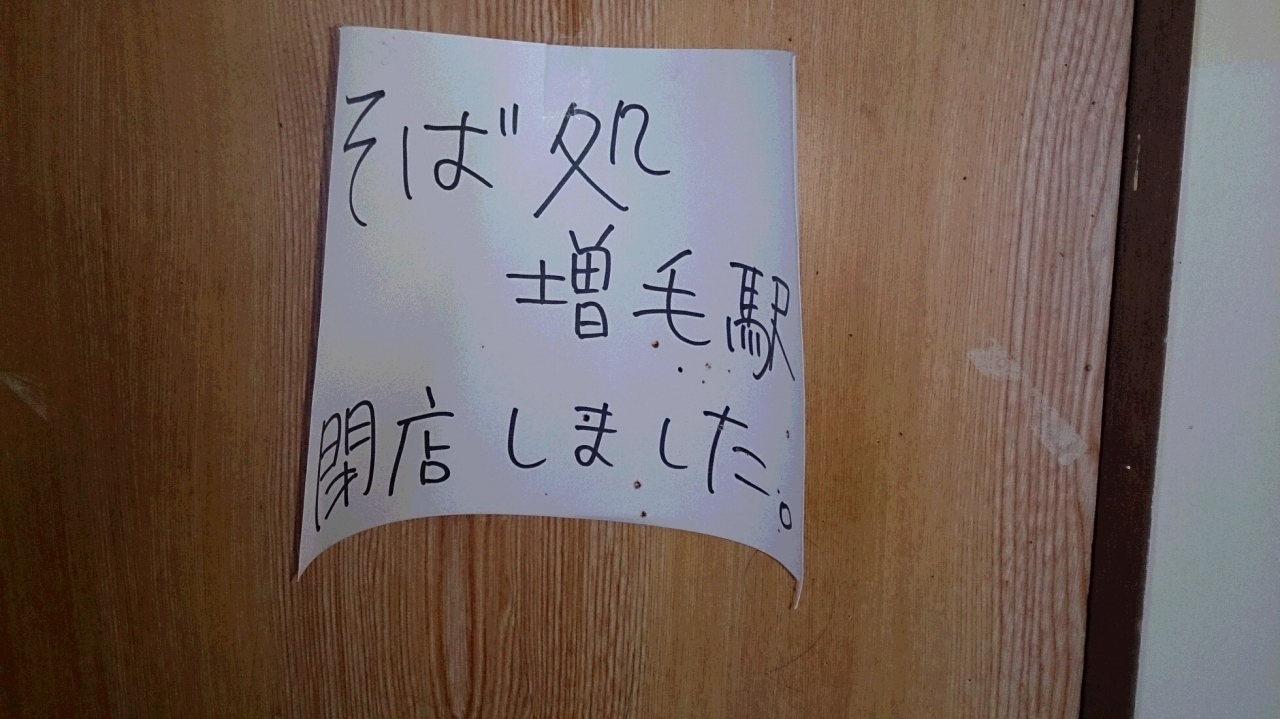 そば処
増毛駅
閉店しました。